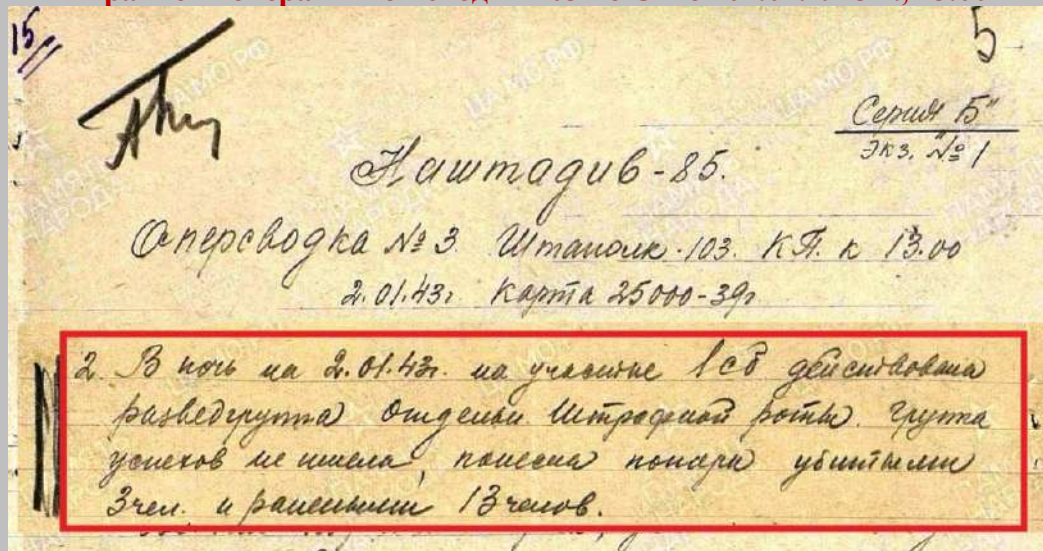 15
5
Серия "Б"
Экз. № 1
Наштадив-85.
Оперсводка № 3. Штаполк-103. КП. к 13.00
2.01.43г. Карта 25000-39г
2. В ночь на 2.01.43г. на участке 1 сб действовала
разведгруппа отдельн. Штрафной роты. Группа
успехов не имела, понесла потери убитыми
3 чел. и ранеными 13 челов.